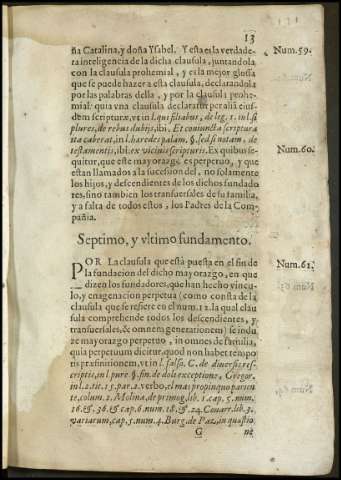 13
ña Catalina, y doña Ysabel. Y esta es la verdade-
ra inteligencia de la dicha clausula, juntandola
con la clausula prohemial, y es la mejor glossa
que se puede hazer a esta clausula, declarandola
por las palabras della, y por la clausula prohe-
mial: quia vna clausula declaratur per aliã eius-
dem scripturæ, vt in l. qui filiabus, de leg. 1. in l. si
plures, de rebus dubijs, ibi, Et coniuncta scriptura
ita caberat, in l. hæredes palam, §. sed si notam, de
testamentis, ibi: ex vicinis scripturis. Ex quibus se-
quitur, que este mayorazgo es perpetuo, y que
estan llamados a la sucession del, no solamente
los hijos, y descendientes de los dichos fundado
res, sino tambien los transuersales de su familia,
y a falta de todos estos, los Padres de la Com-
pañia.
Num. 59.
Num. 60.
Septimo, y vltimo fundamento.
POR La clausula que està puesta en el fin de
la fundacion del dicho mayorazgo, en que
dizen los fundadores, que han hecho vincu-
lo, y enagenacion perpetua (como consta de la
clausula que se refiere en el num. 12. la qual clau
sula comprehende todos los descendientes, y
transuersales, & omnem generationem) se indu
ze mayorazgo perpetuo, in omnes de familia,
quia perpetuum dicitur, quod non habet tempo
ris præfinitionem, vt in l. falso. C. de diuersis res-
criptis, in l. pure §. fin. de doli exceptione, Gregor.
in l. 2. tit. 15. par. 2. verbo, el mas propinquo parien
te, colum. 2. Molina, de primog. lib. 1. cap. 5. num.
16. & 36. & cap. 6. num. 18. & 24. Couarr. lib. 3.
variarum, cap. 5. num. 4. Burg. de Paz, in quæstio
Num. 61.
G
ne